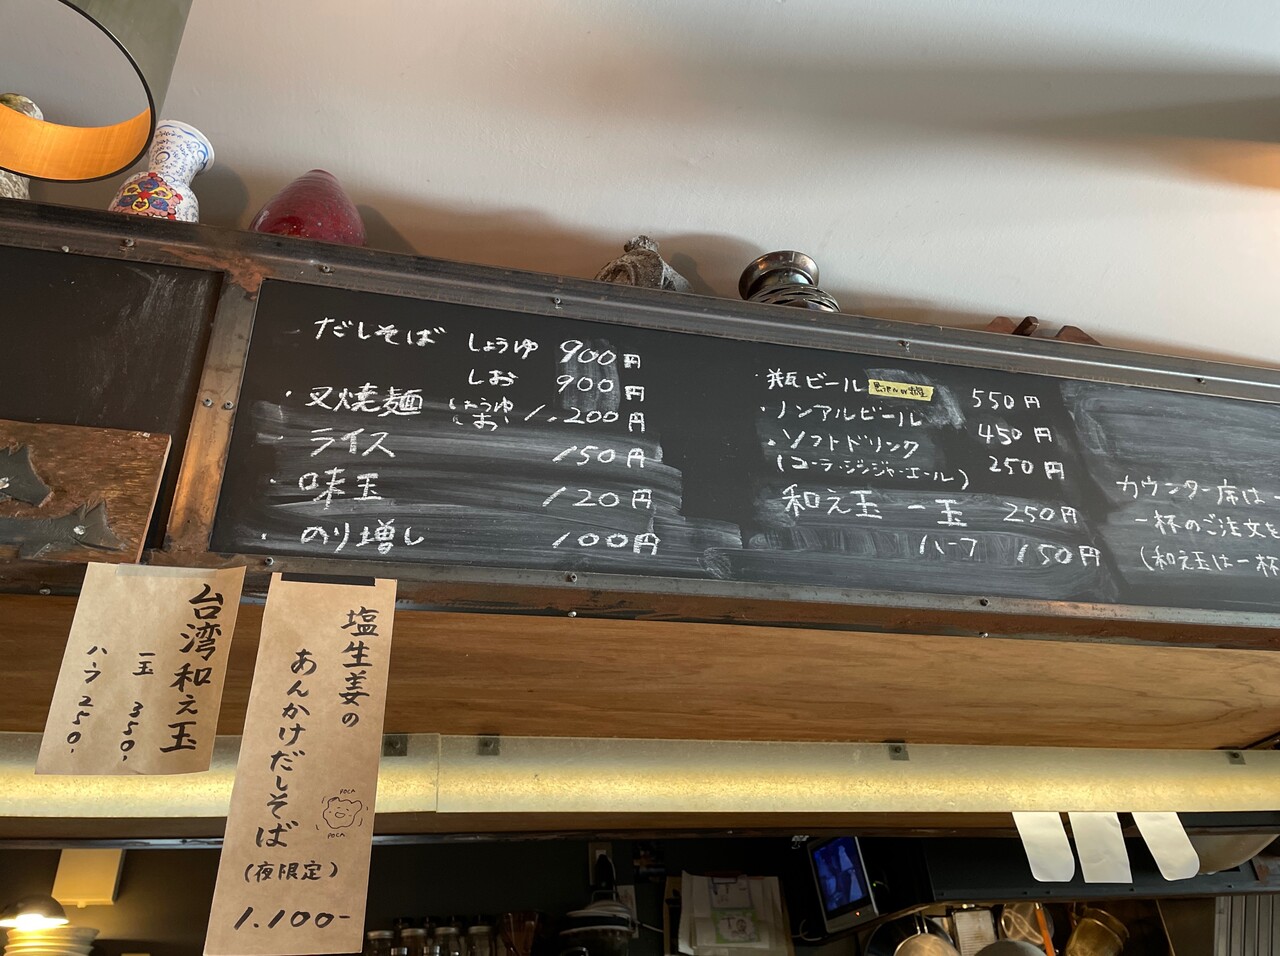 だしそば しょうゆ 900円
しお 900円
・叉焼麺 しょうゆ しお 1.200円
・ライス 150円
・味玉 120円
・のり増し 100円
・瓶ビール 550円
・ノンアルビール 450円
・ソフトドリンク 250円
(コーラ・ジンジャーエール)
和え玉 一玉 250円
ハーフ 150円
カウンター席は一
一杯のご注文を
(和え玉は一杯
台湾和え玉
一玉 350,
ハーフ 250,
塩生姜の
あんかけだしそば
(夜限定)
1.100-
POCA
POCA